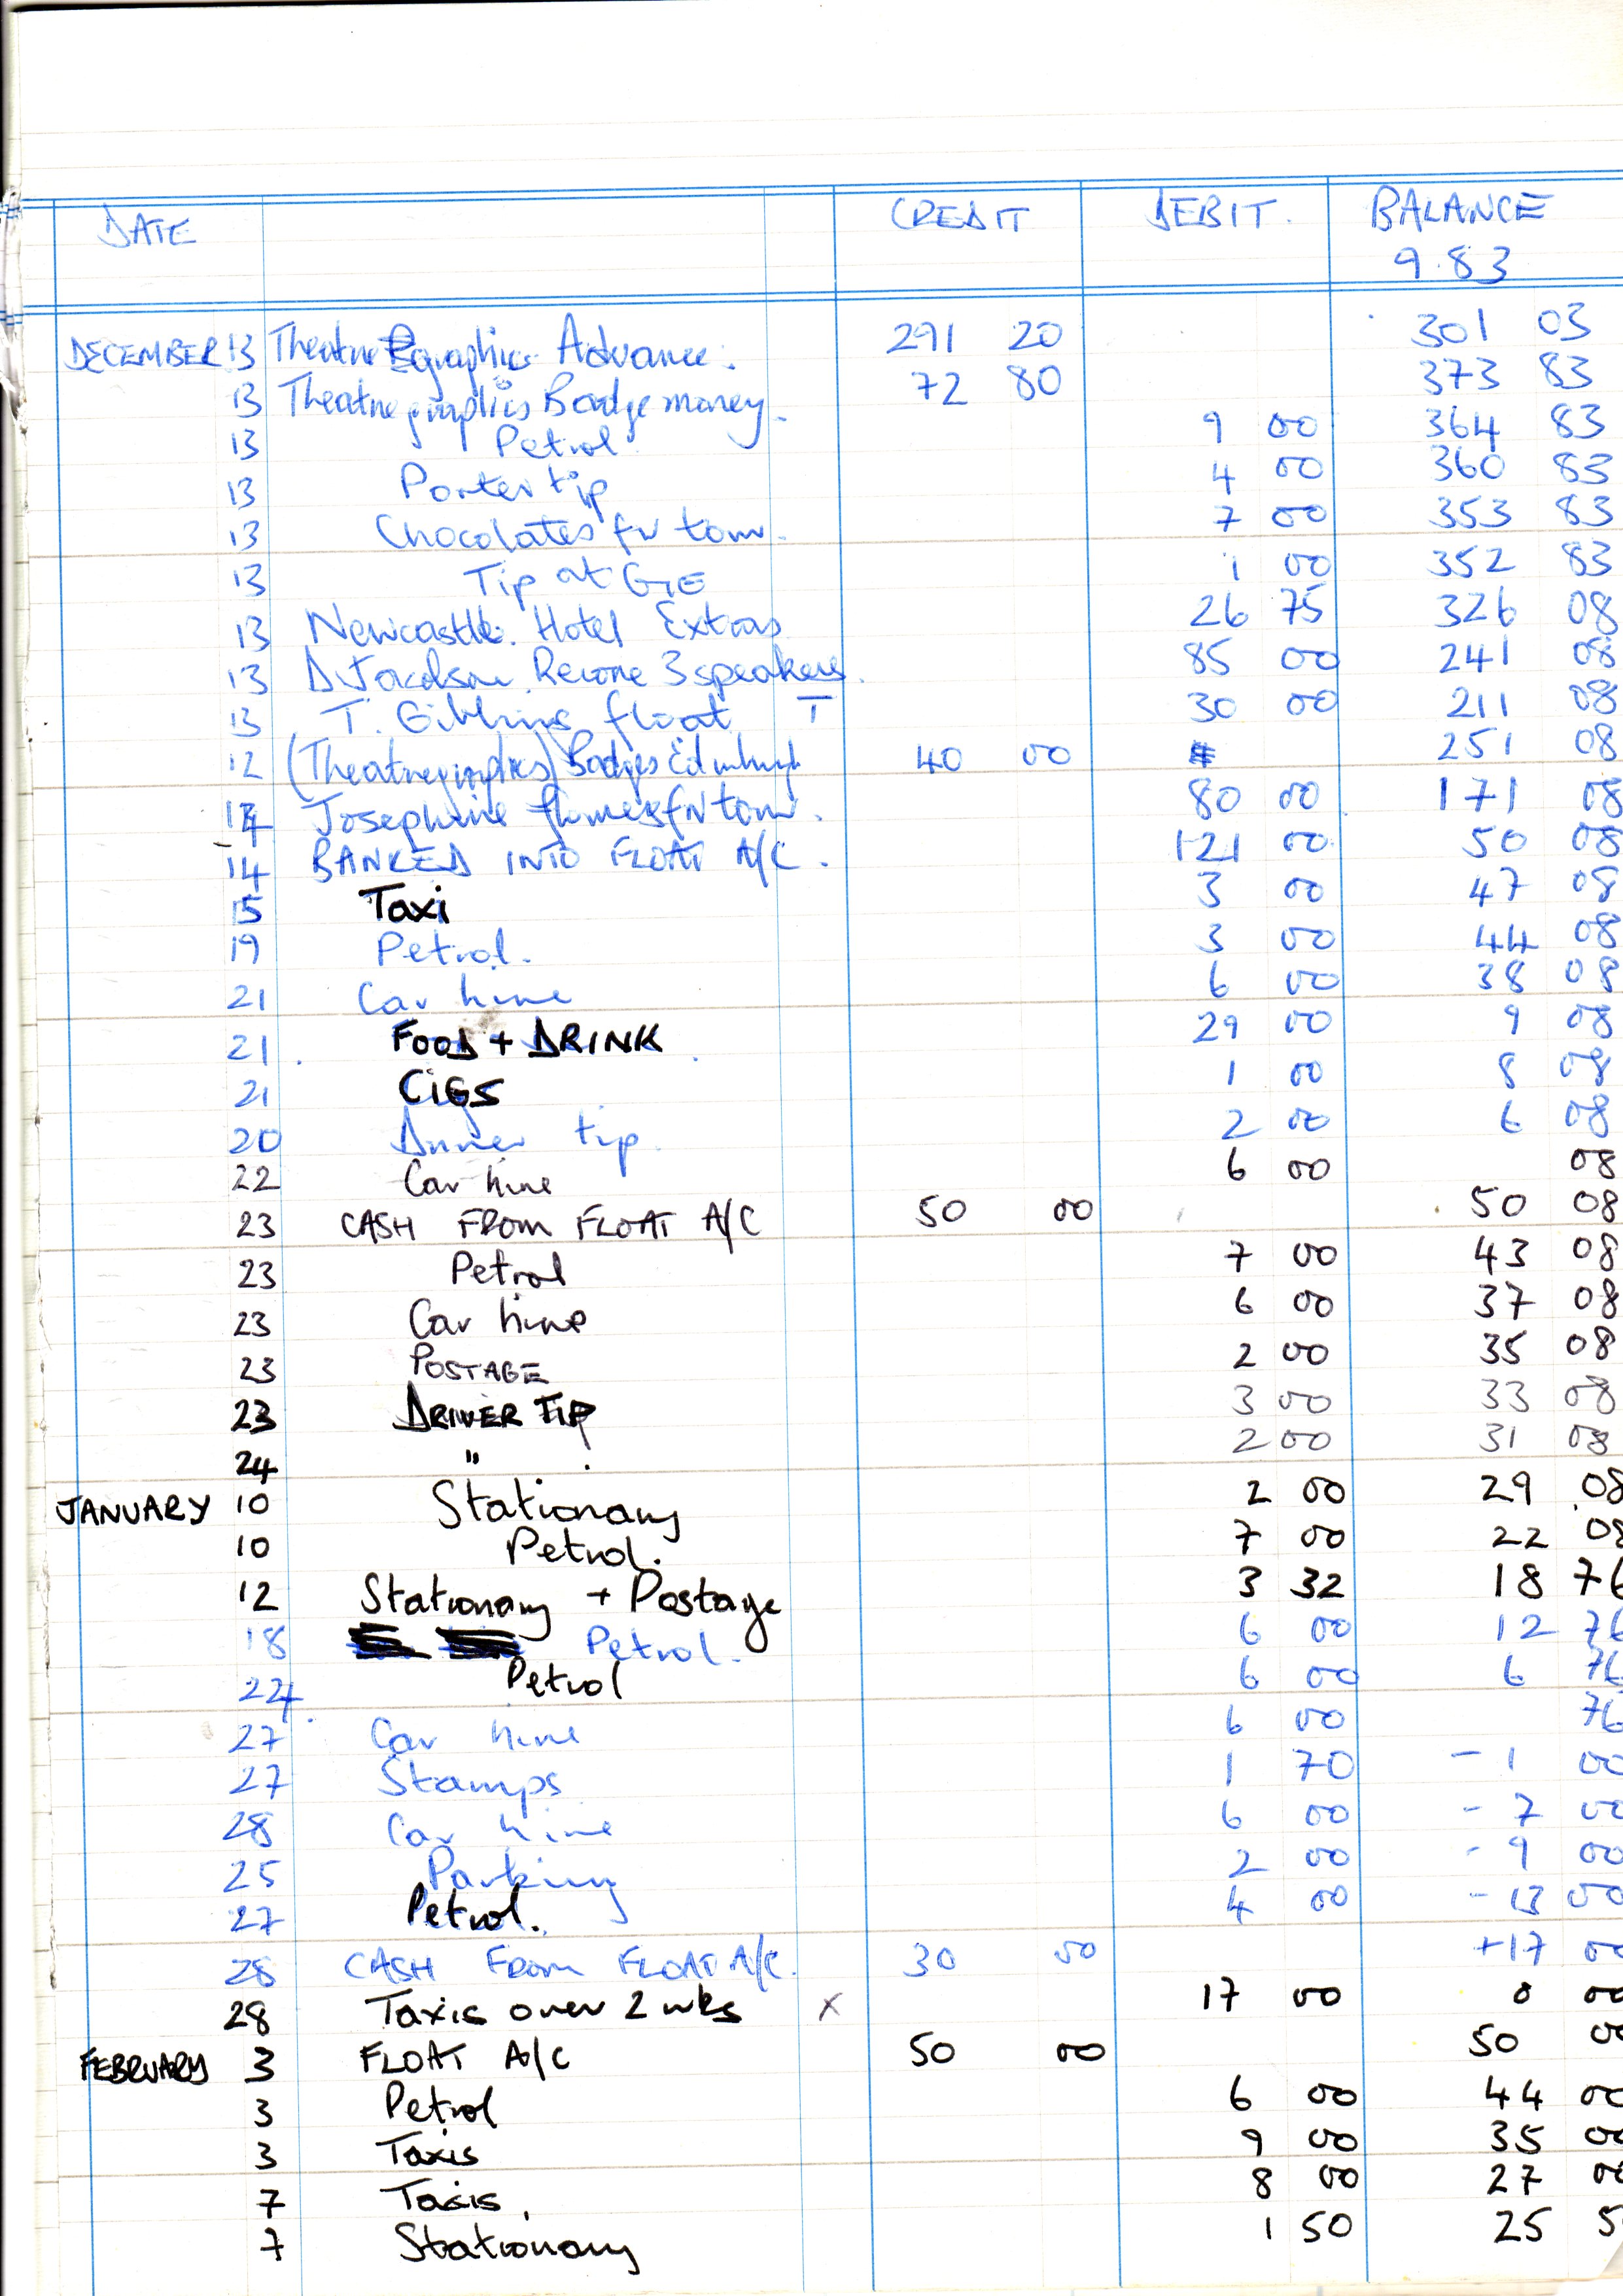 DATE CREDIT DEBIT. BALANCE
9.83
DECEMBER 13 Theatregraphics Advance. 291 20 301 03
13 Theatregraphics Badge money. 72 80 373 83
13 Petrol 9 00 364 83
13 Porter tip 4 00 360 83
13 Chocolates for tour. 7 00 353 83
13 Tip at G&E 1 00 352 83
13 Newcastle. Hotel Extras 26 75 326 08
13 D. Jackson. Recone 3 speakers. 85 00 241 08
13 T. Gibbins float T 30 00 211 08
12 (Theatregraphics) Badges Edinburgh 40 00 251 08
14 Josephine flowers for tour. 80 00 171 08
14 BANKED INTO FLOAT A/C. 121 00 50 08
15 Taxi 3 00 47 08
19 Petrol. 3 00 44 08
21 Car hire 6 00 38 08
21. FOOD + DRINK 29 00 9 08
21 CIGS 1 00 8 08
20 Dinner tip. 2 00 6 08
22 Car hire 6 00 08
23 CASH FROM FLOAT A/C 50 00 50 08
23 Petrol 7 00 43 08
23 Car hire 6 00 37 08
23 POSTAGE 2 00 35 08
23 DRIVER TIP 3 00 33 08
24 " 2 00 31 08
JANUARY 10 Stationary 2 00 29 08
10 Petrol. 7 00 22 08
12 Stationary + Postage 3 32 18 76
18 Petrol. 6 00 12 76
24 Petrol 6 00 6 76
27 Car hire 6 00 76
27 Stamps 1 70 - 1 00
28 Car hire 6 00 - 7 00
25 Parking 2 00 - 9 00
27 Petrol. 4 00 - 13 00
28 CASH FROM FLOAT A/C. 30 00 +17 00
28 Taxis over 2 wks x 17 00 0 00
FEBRUARY 3 FLOAT A/C 50 00 50 00
3 Petrol 6 00 44 00
3 Taxis 9 00 35 00
7 Taxis. 8 00 27 00
7 Stationary 1 50 25 5